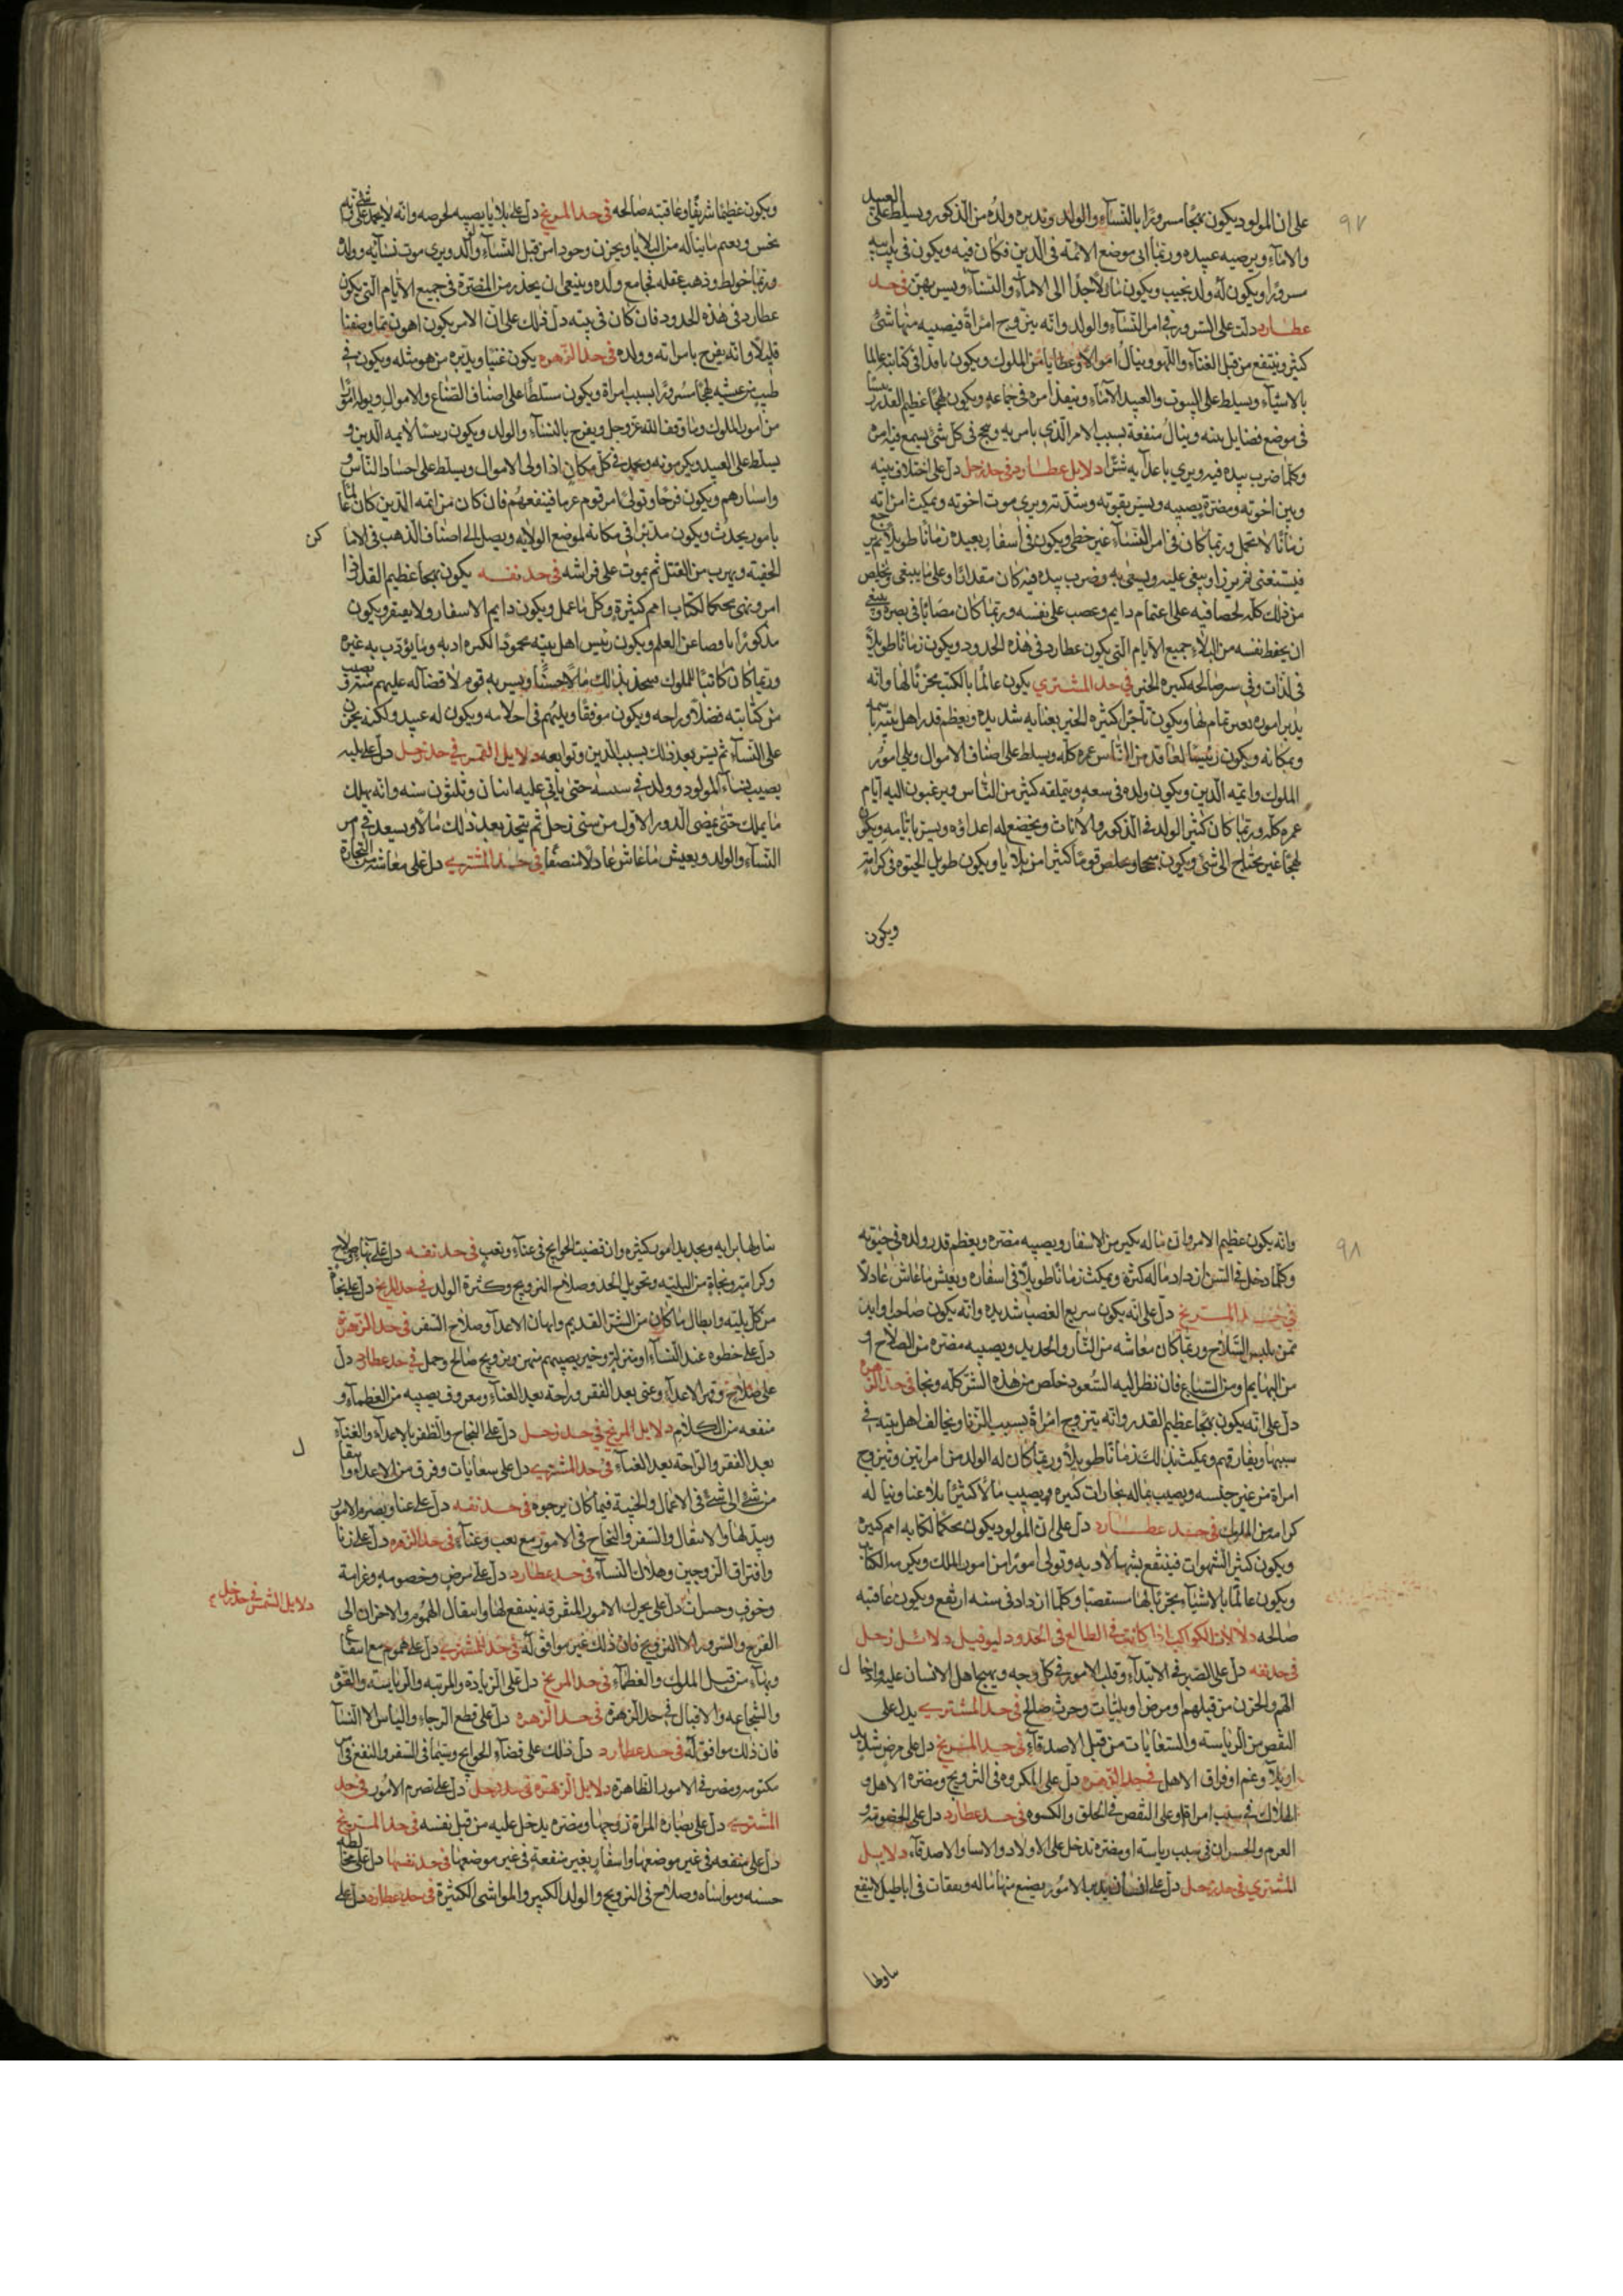 ٩٧
على ان المولود يكون بهجا مسرورا بالنسآء والولد وتدبره ولده من الذكور ويسلط على العبيد
والامآء ويرضيه عبيده وربما اتى موضع الائمه فى الدين فكان فيه ويكون فى بيت ابيه
مسرورا ويكون له ولد نجيب ويكون مايلا جدا الى الامآء والنسآء ويسر بهن فى حد
عطارد دلت على السرور فى امر النسآء والولد وانه يتزوج امراة فيصيبه منها شئ
كثير وينتفع من قبل الغنآء واللهو وينال اموالا وعطايا من الملوك ويكون نافذا فى كتابته عالما
بالاشيآء ويسلط على البيوت والعبيد الامنآء وينفذ امره فى جماعه ويكون بهجا عظيم القدر
فى موضع فضايل بيته وينال منفعة بسبب الامر الذى يامر به وينجح فى كل شئ يسمع فيه امره
وكلما ضرب بيده فيه ويرى باعدآيه شرا دلايل عطارد فى حد زحل دل على اختلاف بينه
وبين اخوته ومضرة تصيبه ويسر بقوته وشدته ويرى موت اخوته ويمكث امراته
زمانا لا تحمل وربما كان فى امر النسآء غير خطى ويكون فى اسفار بعيده زمانا طويلا ثم يرجع
فيستغنى نفر من ذا ويبغى عليه ويسعى به وضرب بيده فيه كان مقداما وعلى ما يبغى ويخلص
من ذلك كله لخصافيه على اغتمام دايم وعصب على نفسه وربما كان مصابا فى بصره وينبغى
ان يحفظ نفسه من البلآء جميع الايام التى يكون عطارد فى هذه الحدود ويكون زمانا طويلا
فى لذات وفى سر صالحه كثيره الخير فى حد المشترى يكون عالما بالكتب مجربا لها وانه
يدبر اموره بعين تمام لها ويكون تاجرا كثيره الخير بعنايه شديده ويعظم قدر اهل بيته باسمه
وبمكانه ويكون رئيسا لمعاقد من الناس عمره كله ويسلط على اصناف الاموال ويلى امور
الملوك وائمه الدين ويكون ولده فى سعه ويتملقه كثير من الناس ويرغبون اليه ايام
عمره كله وربما كان كثير الولد فى الذكور والاناث ويخضع له اعداؤه ويسر بايامه ويكون
بهجا غير محتاج الى شئ ويكون سمحا ويخلص قوما كثيرا من بلايا ويكون طويل الحيوه فى كرامة
ويكون
ويكون عظيما شريفا وعاقبته صالحه فى حد المريخ دل على بلايا يصيبه لحرصه وانه لا يحمد على شئ
نحس ويعم ما يناله من البلايا ويحزن وجودا من قبل النسآء والد ويرى موت نسآئه وولده
وربما خولط وذهب عقله فجامع ولده وينبغى ان يحذر من المضرة فى جميع الايام التى يكون
عطارد فى هذه الحدود فان كان فى بيته دل ذلك على ان الامر يكون اهون مما وصفنا
قليلا وانه يفرح بامراته وولده فى حد الزهره يكون غنيا ويدبره من هو مثله ويكون فى
طيب من عيشه بهجا مسرورا بسبب امراة ويكون مسلطا على اصناف الضياع والاموال ويولد امورا
من امور الملوك وما وقف الله عز وجل ويفرح بالنسآء والولد ويكون رئيسا لائمه الدين و
يسلط على العبيد ويكرمونه ويحمد فى كل مكان اذا ولى الاموال ويسلط على احساد الناس و
واسارهم ويكون فرحا وتولى امر قوم غرما فينفعهم فان كان من ائمه الدين كان عالما
بامور يحدث ويكون مدبرا فى مكانه لموضع الولايه ويصل الى اصناف الذهب فى الاما كن
الخفيه ويهرب من القتل ثم يموت على فراشه فى حد نفسه يكون بهجا عظيم القدر اذا
امر ونهى محكما لكتاب امم كثيرة وكل ما عمل ويكون دايم الاسفار ولا يعيقر ويكون
مذكورا باوصاعن العلم ويكون رئيس اهل بيته محمودا لكثره ادبه وما يؤدب به غيره
وربما كان كاتبا للملوك فيتخذ بذلك مالا حسنا ويسر به قوم لا فضآله عليهم فيشرف يصيب
من كتابته فضلا وراحه ويكون موفقا ويلهم فى احلامه ويكون له عبيد ولكنه يحزن
على النسآء ثم يسر بعد ذلك بسبب الدين وتوابعه دلايل القمر فى حد زحل دل على بليه
يصيب نسآء المولود وولده فى سنه حتى ياتى عليه اثنان وثلثون سنه وانه يهلك
ما يملك حتى يمضى الدور الاول من سنى زحل ثم يتخذ بعد ذلك مالا ويسعد فى امر
النسآء والولد ويعيش ما عاش عادلا منصفا فى حد المشترى دل على معاشه من التجارة
٩٨
وانه يكون عظيم الامر وان يناله بكير من الاسفار ويصيبه مضره ويعظم قدر ولده فى حيوته
وكلما دخل فى السن ازداد ماله كثرة ويمكث زمانا طويلا فى اسفاره ويعيش ما عاش عادلا
فى حد المريخ دل على انه يكون سريع الغضب شديده وانه يكون صاحب وابدن
ممن يلبس السلاح وربما كان معاشه من النار والحديد ويصيبه مضره من السلاح او
من البهايم او من السباع فان نظر اليه السعود خلص من هذه الشر كله ونجا فى حد الزهره
دل على انه يكون بهجا عظيم القدر وانه يتزوج امراة بسبب الزنا ويخالف اهل بيته فى
سببها ويفارقهم ويمكث بذلك زمانا طويلا وربما كان له الولد من امراتين ويتزوج
امراة من غير جنسه ويصيب بماله تجارات كثيره ويصيب مالا كثيرا بلا عنا وينا له
كرامه من الملوك فى حد عطارد دل على ان المولود يكون محكما لكتابه امم كثيره
ويكون كثير الشهوات فينتفع بشهالادبه وتولى امورا من امور الملك ويكرمه الكتاب
ويكون عالما بالاشيآء مجربا لها مستقصيا وكلما ازداد فى سنه ارتفع ويكون عاقبته
صالحه دلالات الكواكب اذا كانت فى الطالع فى الحدود ليوفيل دلائل زحل
فى حد نفسه دل على الضير فى الابتدآء وقلب الامور فى كل وجه ويهيج اهل الانسان عليه وادخال
الهم والحزن من قبلهم او مرض او بليات وحرث صالح فى حد المشترى يدل على
النقص من الرياسه والسعايات من قبل الاصدقآء فى حد المريخ دل على مرض شديد
او بلآء وغم او فراق الاهل فى حد الزهره دل على المكروه فى التزويج ومضره الاهل و
الهلاك فى سبب امراة او على النقص فى الخلق والكسوه فى حد عطارد دل على الخصومة و
الغرم والخسران فى سبب رياسته او مضره تدخل على الاولاد والاسا والاصدقآء دلايل
المشترى فى حد زحل دل على انسان يدبر الامور يضيع منها ماله ونفقات فى اباطيل لا ينفع
ساولها
ساولها برايه وبجديد امور كثيره وان قضيت الحوايج فى عنآء وتعب فى حد نفسه دل على بنا وصلاح
وكرامة ونجاة من البليه وتحويل الحد وصلاح التزويج وكثرة الولد فى حد المريخ دل على نجاة
من كل بليه وابطال ما كان من الشر القديم وايهان الاعدآ وصلاح السفر فى حد الزهرة
دل على خطوه عند النسآء او منزلة وخير يصيبهم منهن وتزويج صالح وحمل فى حد عطارد دل
على صلاح وقهر الاعدآء وغنى بعد الفقر وراحة بعد العنآء ومعروف يصيبه من العظمآء و
منفعه من الكلام دلايل المريخ فى حد زحل دل على النجاح والظفر بالاعدآء والغنآء
بعد الفقر والراحة بعد العنآء فى حد المشترى دل على سعايات وفرق من الاعداء وانتقال
من شئ الى شئ فى الاعمال والخيبة فيما كان يرجوه فى حد نفسه دل على عنا وبصرم الامور
وبيد لها والانتقال والسفر والنجاح فى الامور مع تعب وعنآء فى حد الزهره دل على زنا
وافتراق الزوجين وهلاك النسآء فى حد عطارد دل على مرض وخصومه وغرامة
وخوف وخسران دل على تحرك الامور المتفرقه ينتفع لها وانتقال الهموم والاحزان الى
دلايل الشمس فى حد زحل
الفرح والسرور الا التزويج فان ذلك غير موافق له فى حد المشترى دل على هموم مع انتفاع
وبهآء من قبل الملوك والعظمآء فى حد المريخ دل على الزيادة والمرتبه والرياسته والقوة
والشجاعه والاقبال فى حد الزهرة فى حد الزهره دل على قطع الرجاء والياس الا النسآ
فان ذلك موافق له فى حد عطارد دل ذلك على قضآء الحوايج وسيما فى السفر والنفع فى
مكتومه ومضر فى الامور الظاهرة دلايل الزهرة فى حد زحل دل على تصرم الامور فى حد
المشترى دل على مضاره المراة زوجها ومضره يدخل عليه من قبل نفسه فى حد المريخ
دل على منفعه فى غير موضعها واسفار بغير منفعة فى غير موضعها فى حد نفسها دل على مخالطه
حسنه ومواساه وصلاح فى التزويج والولد الكبير والمواشى الكثيرة فى حد عطارد دل على